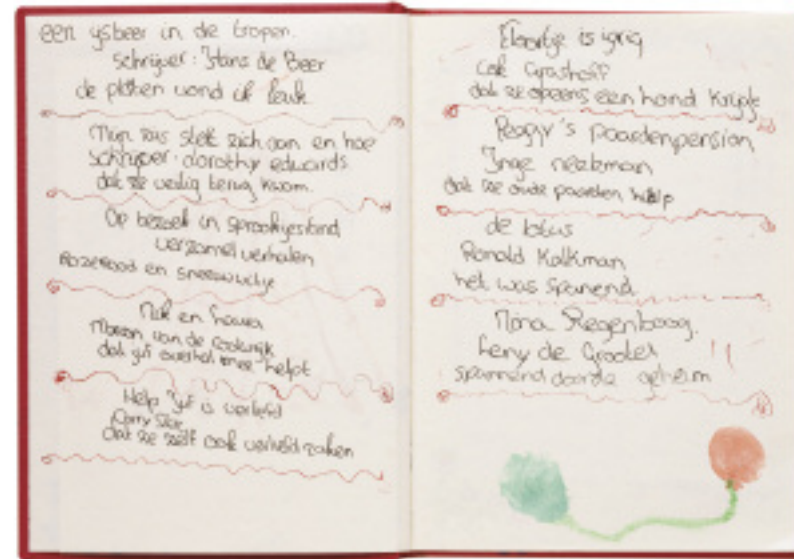 een ysbeer in de tropen.
Schrijver: Hans de Beer
de platen vond ik leuk
Mijn zus stelt zich aan en hoe
Schrijver: dorothy edwards
dat ze veilig terug kwam.
Op bezoek in sprookjesland
verzamel verhalen
Rozerood en sneeuwwitje
Nik en
van de
dat overal mee helpt
Help Juf is verliefd
dat ze zelf ook verliefd raken
Floortje is jarig
Cok Grashoff
dat ze opeens een hond krijgt
Peggy's paardenpension
Inge neeleman
dat ze oude paarden hielp
de lotus
Ronald Kalkman
het was spanend
Nina Regenboog.
Leny de Grootel
spannend door de geheim